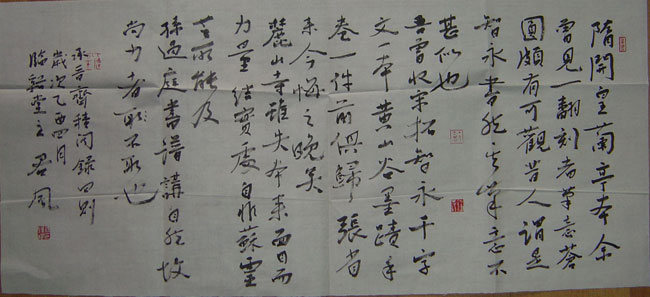 隋開皇蘭亭本余
曾見一翻刻者筆意蒼
圓頗有可觀昔人謂是
智永書然其筆意不
甚似也
吾曾收宋拓智永千字
文一本黄山谷墨蹟手
卷一件前俱歸張省
未今悔之晚矣
麓山寺雖失本来面目而
力量結實處自非蘇靈
芝所能及
孫過庭書譜講自然故
尚力者所不取也
承晋齋積聞録四則
歲次乙酉四月
堂主君風